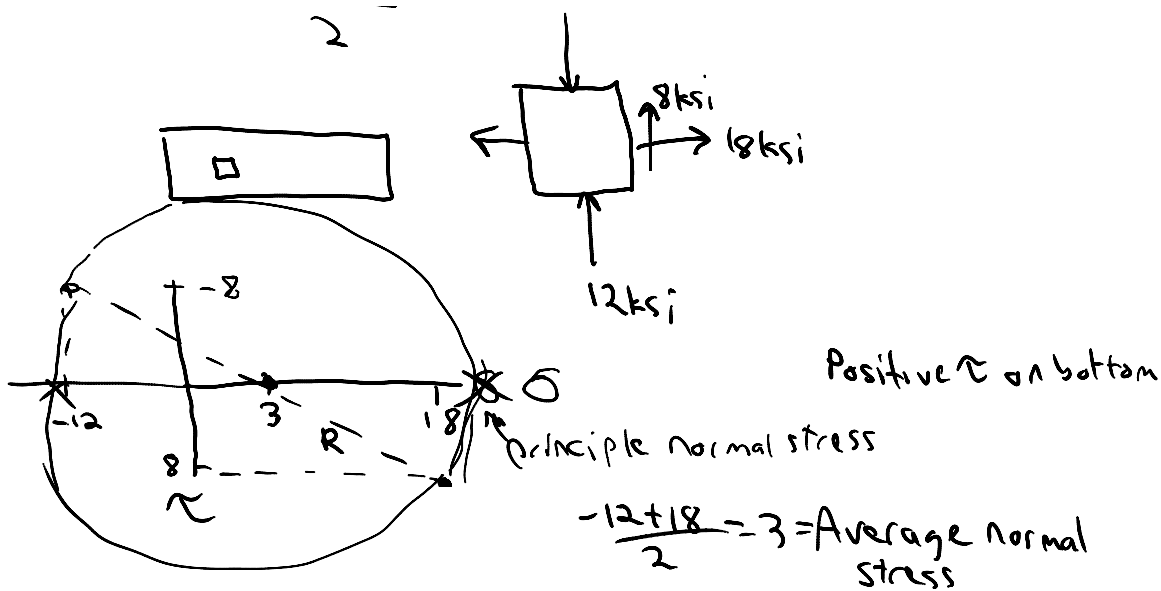 2
8ksi
18ksi
12ksi
-8
-12
3
18
σ
R
8
τ
Positive τ on bottom
principle normal stress
-12+18
2
=3=Average normal
stress